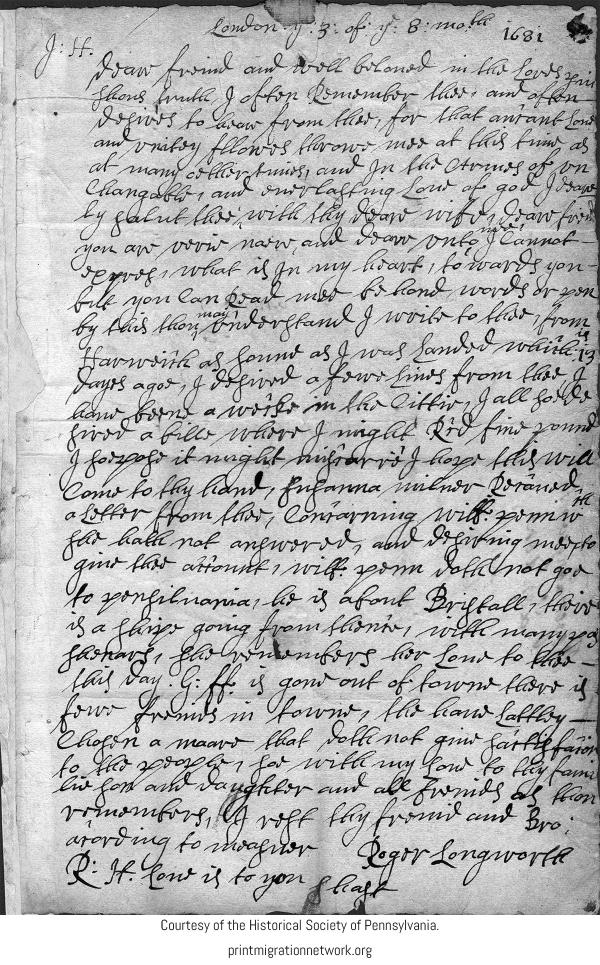 London y 3: of: y: 8: mo:th 1681
J: H.
deare freind and well beloned in the Lords
shous truth, J often Remember thee, and often
desires to heare from thee, for that Loue
and vnitey fllowes throwe mee at this time as
at many other times, and Jn the Armes of vn
Changable, and euerlasting Loue of god J deare
ly salut thee, with thy deare wife, deare freid
you are verie neere and deare vnto mee J Cannot
expres, what is Jn my heart, to wards you -
but you Can Read mee be hond words or pen
by this thou may vnderstand J wrote to thee, from
Harweith as soune as J was Landed which is 13
dayes agoe, J desired a fewe Lines from thee J
haue beene a weeke in the Cittie, J allsoe de
sired a bille where J might Rd fiue pound
J soepose it might J hope this will
Come to thy hand, Susanna milner Receaued
a Letter from thee, Concarning will: penn wth
she hath not answered, and desiring mee to
giue thee acount, will: penn doth not goe
to pensiluania, he is about Bristall, theire
is a shipe going from thence, with many pas
shenars, she remembers her Loue to thee -
this day. G: ff: is gone out of towne there is
fewe freinds in towne, the haue Lattley -
Chosen a maare that doth not giue sattisfacion
to the people, soe with my Loue to thy fami
lie son and daughter and all freinds as thou
remembers, J rest thy freind and Bro:
acording to measuer Roger Longworth
R: H. Loue is to you
Courtesy of the Historical Society of Pennsylvania.
printmigrationnetwork.org